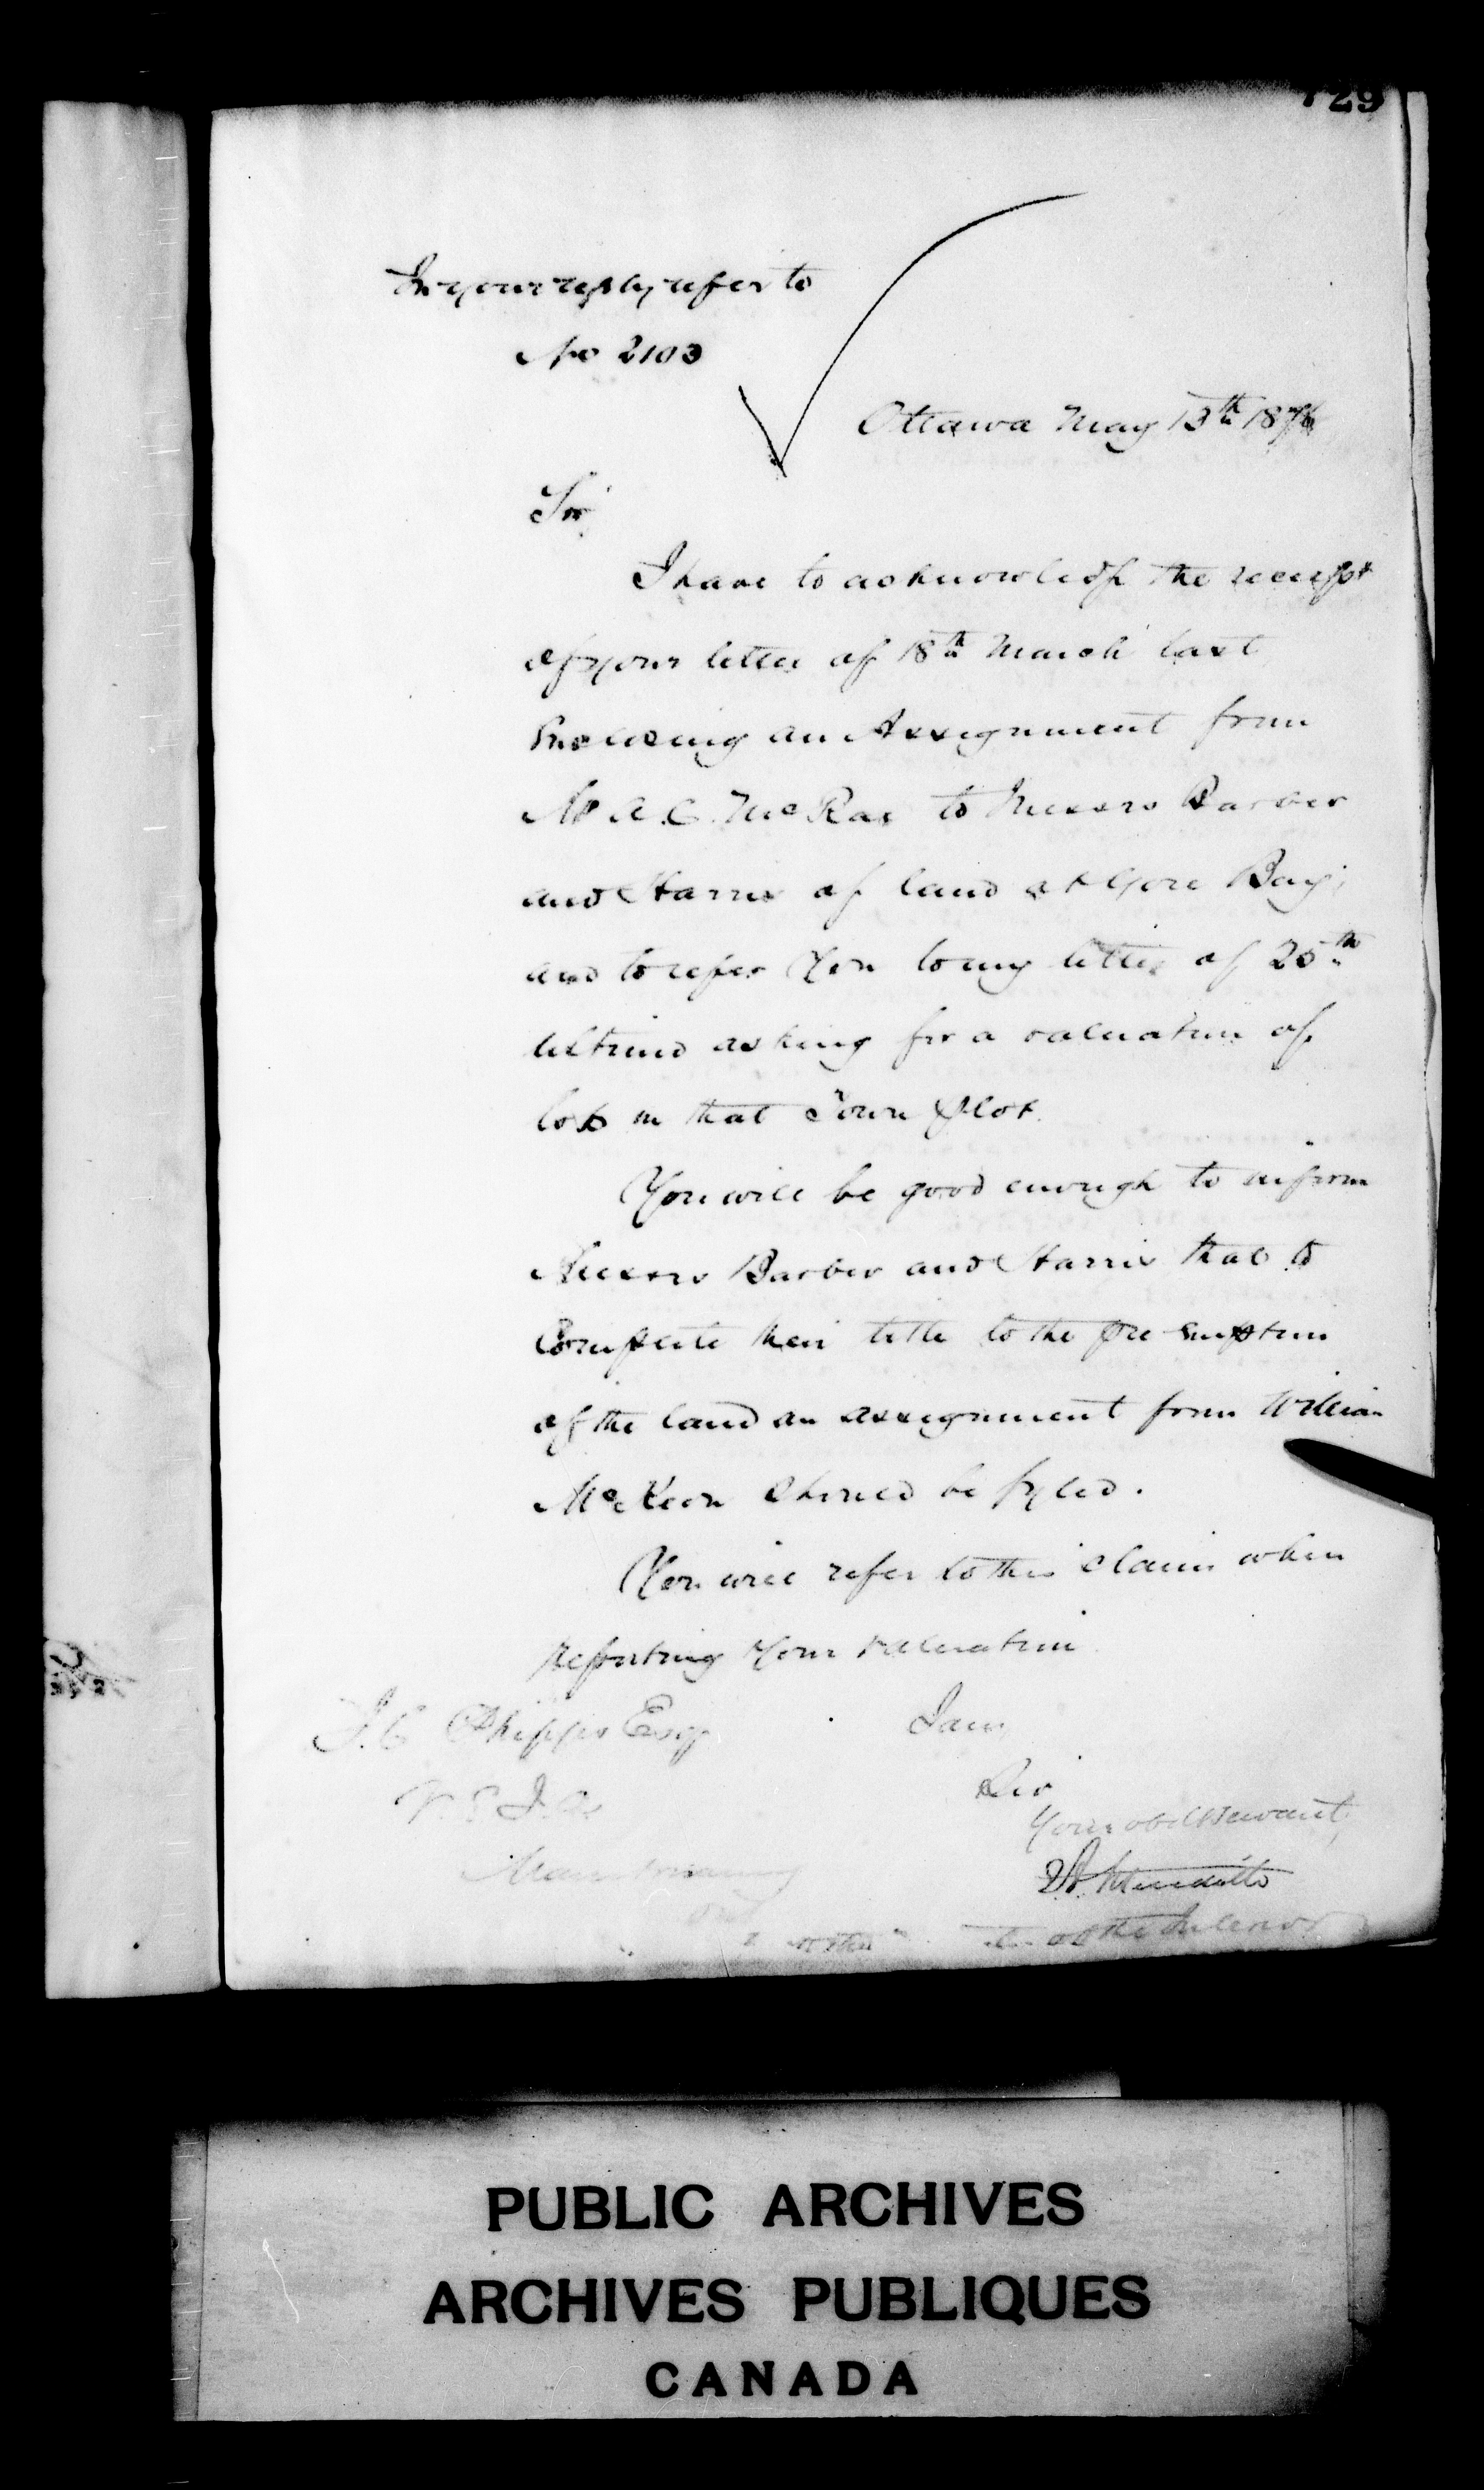 729
In your reply refer to
No 2103
Ottawa May 13th 1876
Sir,
I have to acknowledge the receipt
of your letter of 18th March last
Enclosing an Assignment from
Mr A. C. McRae to Messrs Barber
and Harris of land at Gore Bay,
and to refer You to my letter of 25th
ultimo asking for a valuation of
lots in that Town plot.
You will be good enough to inform
Messrs Barber and Harris that to
Complete their title to the pre-emption
of the land an assignment from William
McKeon should be fyled.
You will refer to this claim when
Reporting Your valuation
J. C. Phipps Esq
V. S. I. A.
Manitowaning
I am,
Sir
Your obdt Servant,
of the Interior
PUBLIC ARCHIVES
ARCHIVES PUBLIQUES
CANADA